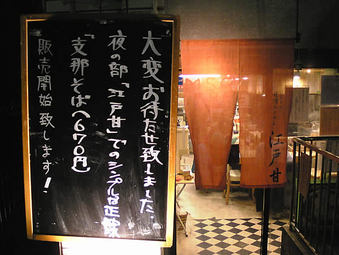 大変お待たせ致しました
夜の部「江戸甘」でのシンプルな正統
「支那そば(670円)
販売開始致します!
江戸甘